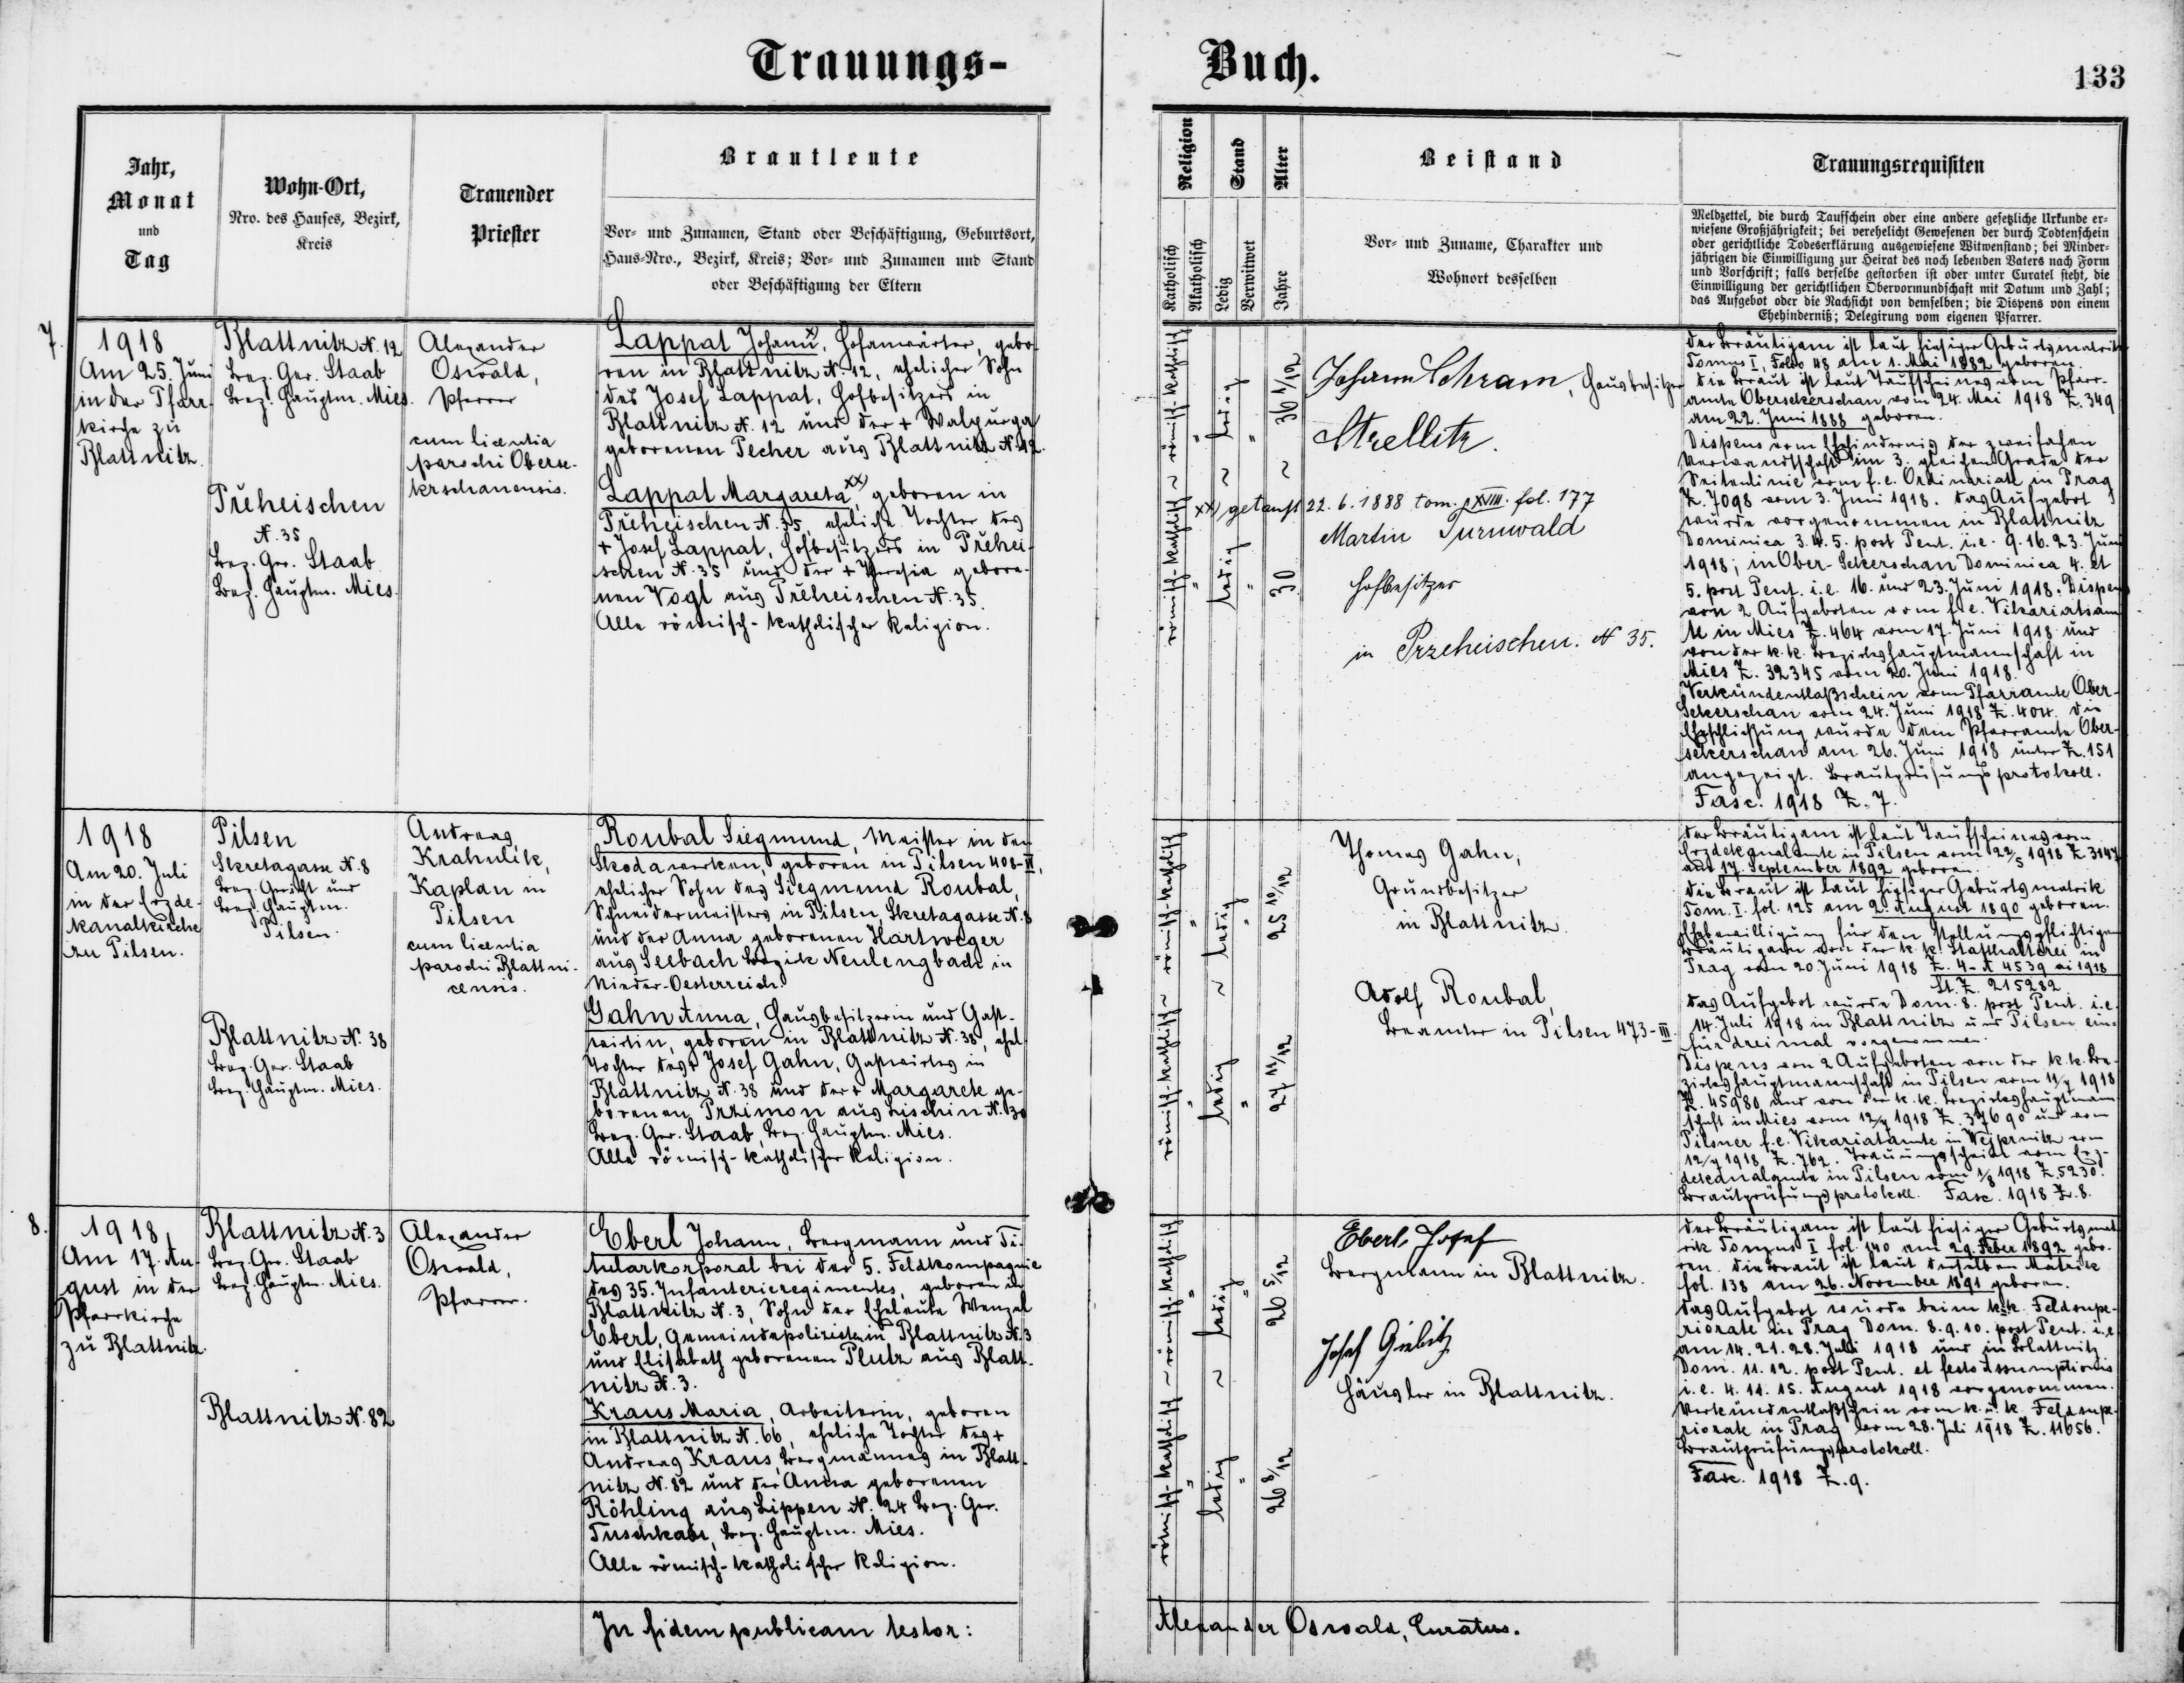 Trauungs-
Buch.
133
Jahr,
Monat
und
Tag
Wohn-Ort,
Nro. des Hauses, Bezirk,
Kreis
Trauender
Priester
Brautleute
Vor- und Zunamen, Stand oder Beschäftigung, Geburtsort,
Haus-Nro., Bezirk, Kreis; Vor- und Zunamen und Stand
oder Beschäftigung der Eltern
Religion
Katholisch
Akatholisch
Stand
Ledig
Verwitwet
Alter
Jahre
Beistand
Vor- und Zuname, Charakter und
Wohnort desselben
Trauungsrequisiten
Meldzettel, die durch Taufschein oder eine andere gesetzliche Urkunde er-
wiesene Großjährigkeit; bei verehelicht Gewesenen der durch Todtenschein
oder gerichtliche Todeserklärung ausgewiesene Witwenstand; bei Minder-
jährigen die Einwilligung zur Heirat des noch lebenden Vaters nach Form
und Vorschrift; falls derselbe gestorben ist oder unter Curatel steht, die
Einwilligung der gerichtlichen Obervormundschaft mit Datum und Zahl;
das Aufgebot oder die Nachsicht von demselben; die Dispens von einem
Ehehinderniß; Delegirung vom eigenen Pfarrer.
7.
1918
Am 25. Juni
in der Pfarr-
kirche zu
Blattnitz.
Blattnitz N. 12
Bez. Ger. Staab
Bez. Hauptm. Mies.
Přeheischen
N. 35
Bez. Ger. Staab
Bez. Hauptm. Mies.
Alexander
Oswald,
Pfarrer
cum licentia
parochi Oberse-
kerschanensis.
Lappat Johann, Hofanwärter, gebo-
ren in Blattnitz N. 12, ehelicher Sohn
des Josef Lappat, Hofbesitzers in
Blattnitz N. 12 und der + Walpurga
geborenen Pecher aus Blattnitz N. 42.
Lappat Margareta xx), geboren in
Přeheischen N. 35, eheliche Tochter des
+ Josef Lappat, Hofbesitzers in Přehei-
schen N. 35 und der + Theresia gebore-
nen Vogl aus Přeheischen N. 35.
Alle römisch-katholischer Religion.
römisch-katholisch ~ römisch-katholisch
ledig ~ ledig
36 1/12 ~ 30
Johann Schram, Hausbesitzer
Strellitz.
xx) getauft 22. 6. 1888 tom. XVIII. fol. 177
Martin Turnwald
Hofbesitzer
in Przeheischen. N 35.
Der Bräutigam ist laut hiesiger Geburtsmatrik
Tomus I, Folio 48 am 1. Mai 1882 geboren.
Die Braut ist laut Taufscheines vom Pfarr-
amte Obersekerschan vom 24. Mai 1918 Z. 349
am 22. Juni 1888 geboren.
Dispens vom Ehehindernis der zweifachen
Verwandtschaft im 3. gleichen Grade der
Seitenlinie vom f. e. Ordinariate in Prag
Z. 7098 vom 3. Juni 1918. Das Aufgebot
wurde vorgenommen in Blattnitz
Dominica 3. 4. 5. post Pent. i. e. 9. 16. 23. Juni
1918; in Ober-Sekerschan Dominica 4. et
5. post Pent. i. e. 16. und 23. Juni 1918. Dispens
von 2 Aufgeboten vom f. e. Vikariatsam-
te in Mies Z. 464 vom 17. Juni 1918 und
von der k. k. Bezirkshauptmannschaft in
Mies Z. 32345 vom 20. Juni 1918.
Verkündentlaßschein vom Pfarramte Ober-
Sekerschan vom 24. Juni 1918 Z. 404. Die
Eheschließung wurde dem Pfarramte Ober-
sekerschan am 26. Juni 1918 unter Z. 151
angezeigt. Brautprüfungsprotokoll.
Fasc. 1918 Z. 7.
1918
Am 20. Juli
in der Erzde-
kanalkirche
zu Pilsen.
Pilsen
Skretagasse N. 8
Bez. Gericht und
Bez. Hauptm.
Pilsen.
Blattnitz N. 38
Bez. Ger. Staab
Bez. Hauptm. Mies.
Andreas
Krahulik,
Kaplan in
Pilsen
cum licentia
parochi Blattni-
censis.
Roubal Siegmund, Meister in den
Skodawerken, geboren in Pilsen 408-II,
ehelicher Sohn des Siegmund Roubal,
Schneidermeisters in Pilsen, Skretagasse N. 8
und der Anna geborenen Hartweger
aus Seebach Bezirk Neulengbach in
Nieder-Oesterreich.
Gahn Anna, Hausbesitzerin und Gast-
wirtin, geboren in Blattnitz N. 38, ehel.
Tochter des + Josef Gahn, Gastwirtes in
Blattnitz N. 38 und der + Margarete ge-
borenen Przimon aus Lischin N. 30
Bez. Ger. Staab, Bez. Hauptm. Mies.
Alle römisch-katholischer Religion.
römisch-katholisch ~ römisch-katholisch
ledig ~ ledig
25 10/12
27 11/12
Thomas Gahn,
Grundbesitzer
in Blattnitz.
Adolf Roubal,
Beamter in Pilsen 473-III.
Der Bräutigam ist laut Taufscheines vom
Erzdekanalamte in Pilsen vom 22/5 1918 Z. 3147
am 17. September 1892 geboren.
Die Braut ist laut hiesiger Geburtsmatrik
Tom. I. fol. 125 am 2. August 1890 geboren.
Ehebewilligung für den stellungspflichtigen
Bräutigam von der k. k. Statthalterei in
Prag vom 20. Juni 1918 Z. 4-A 4539 ai 1918
St. Z. 215282.
Das Aufgebot wurde Dom. 8. post Pent. i. e.
14. Juli 1918 in Blattnitz und Pilsen ein
für dreimal vorgenommen.
Dispens von 2 Aufgeboten von der k. k. Be-
zirkshauptmannschaft in Pilsen vom 11/7 1918
Z. 45980 und von der k. k. Bezirkshauptmann-
schaft in Mies vom 12/7 1918 Z. 37690 und vom
Pilsner f. e. Vikariatamte in Wejprnitz vom
12/7 1918 Z. 762. Trauungsschein vom Erz-
dekanalamte in Pilsen vom 1/8 1918 Z. 5230.
Brautprüfungsprotokoll. Fasc. 1918 Z. 8.
8.
1918
Am 17. Au-
gust in der
Pfarrkirche
zu Blattnitz.
Blattnitz N. 3
Bez. Ger. Staab
Bez. Hauptm. Mies.
Blattnitz N. 82
Alexander
Oswald,
Pfarrer.
Eberl Johann, Bergmann und Ti-
tularkorporal bei der 5. Feldkompagnie
des 35. Infanterieregimentes, geboren in
Blattnitz N. 3, Sohn der Eheleute Wenzel
Eberl, Gemeindepolizisten in Blattnitz N. 3
und Elisabeth geborenen Plutz aus Blatt-
nitz N. 3.
Kraus Maria, Arbeiterin, geboren
in Blattnitz N. 66, eheliche Tochter des +
Andreas Kraus, Bergmannes in Blatt-
nitz N. 82 und der Anna geborenen
Röhling aus Lippen N. 24 Bez. Ger.
Tuschkau, Bez. Hauptm. Mies.
Alle römisch-katholischer Religion.
römisch-katholisch ~ römisch-katholisch
ledig ~ ledig
26 5/12
26 8/12
Eberl Josef
Bergmann in Blattnitz.
Josef
Häusler in Blattnitz.
Der Bräutigam ist laut hiesiger Geburtsmat-
rik Tomus I fol. 140 am 29. Feber 1892 gebo-
ren. Die Braut ist laut derselben Matrik
fol. 138 am 26. November 1891 geboren.
Das Aufgebot wurde beim k. k. Feldsupe-
riorate in Prag Dom. 8. 9. 10. post Pent. i. e.
am 14. 21. 28. Juli 1918 und in Blattnitz
Dom. 11. 12. post Pent. et festo Assumptionis
i. e. 4. 11. 15. August 1918 vorgenommen.
Verkündentlaßschein vom k. u. k. Feldsupe-
riorate in Prag vom 28. Juli 1918 Z. 11656.
Brautprüfungsprotokoll.
Fasc. 1918 Z. 9.
In fidem publicam testor:
Alexander Oswald, Curatus.